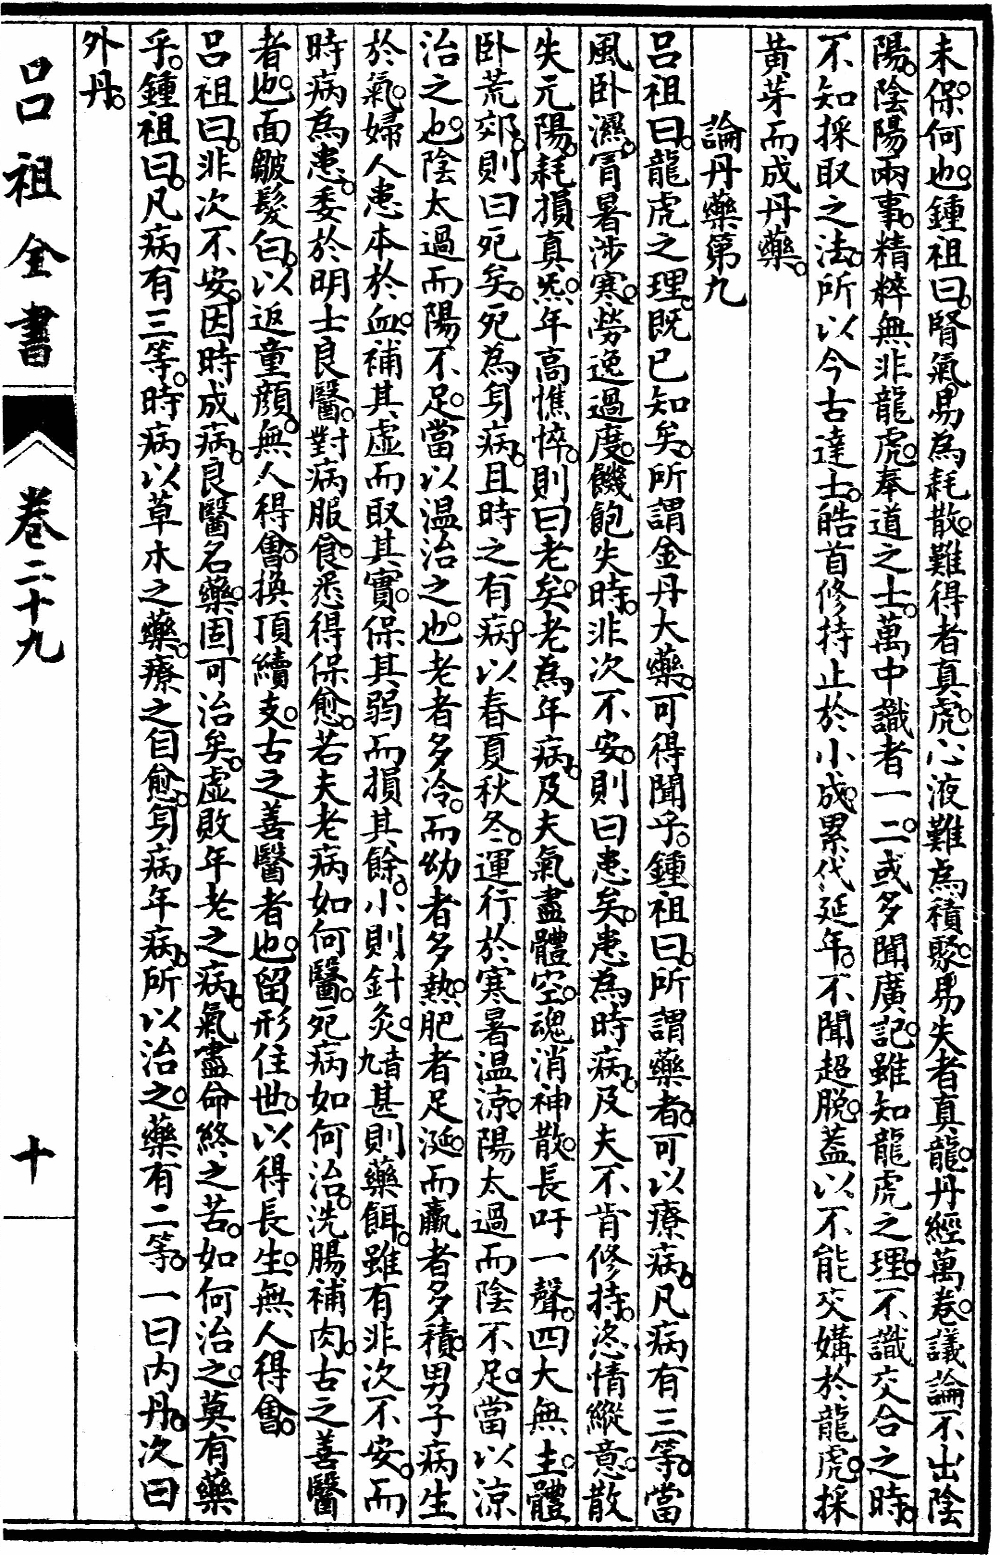 未保何也鍾祖曰腎氣易為耗散難得者真虎心液難為積聚易失者真龍丹經萬卷議論不出陰
陽陰陽兩事精粹無非龍虎奉道之士萬中識者一二或多聞廣記雖知龍虎之理不識交合之時
不知採取之法所以今古達士皓首修持止於小成累代延年不聞超脫蓋以不能交媾於龍虎採
黃芽而成丹藥
論丹藥第九
呂祖曰龍虎之理既已知矣所謂金丹大藥可得聞乎鍾祖曰所謂藥者可以療病凡病有三等當
風臥濕冒暑涉寒勞逸過度饑飽失時非次不安則曰患矣患為時病及夫不肯修持恣情縱意散
失元陽耗損真炁年高憔悴則曰老矣老為年病及夫氣盡體空魂消神散長吁一聲四大無主體
臥荒郊則曰死矣死為身病且時之有病以春夏秋冬運行於寒暑温涼陽太過而陰不足當以涼
治之也陰太過而陽不足當以温治之也老者多冷而幼者多熱肥者足涎而羸者多積男子病生
於氣婦人患本於血補其虛而取其實保其弱而損其餘小則針灸音九甚則藥餌雖有非次不安而
時病為患委於明士良醫對病服食悉得保愈若夫老病如何醫死病如何治洗腸補肉古之善醫
者也面皺髮白以返童顏無人得會換頂續支古之善醫者也留形住世以得長生無人得會
呂祖曰非次不安因時成病良醫名藥固可治矣虛敗年老之病氣盡命終之苦如何治之莫有藥
乎鍾祖曰凡病有三等時病以草木之藥療之自愈身病年病所以治之藥有二等一曰內丹次曰
外丹
呂祖全書
卷二十九
十